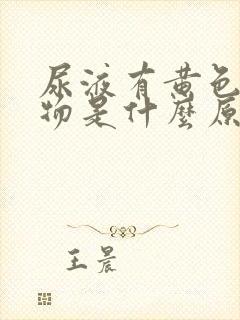 尿液有黄色
物是什麼原
王晨